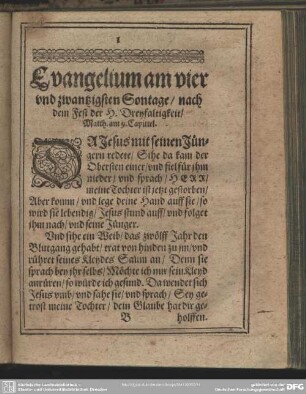 1
Evangelium am vier
vnd zwantzigsten Sontage / nach
dem Fest der H. Dreyfaltigkeit /
Matth. am 9. Capittel.
DA Jesus mit seinen Jün-
gern redete / Sihe da kam der
Obersten einer / vnd fiel für jhm
nieder / vnd sprach / HERR /
meine Tochter ist jetzt gestorben /
Aber komm / vnd lege deine Hand auff sie / so
wird sie lebendig / Jesus stund auff / vnd folget
ihm nach / vnd seine Jünger.
Vnd sihe ein Weib / das zwölff Jahr den
Blutgang gehabt / trat von hinden zu jm / vnd
rühret seines Kleydes Saum an / Denn sie
sprach bey jhr selbs / Möchte ich nur sein Kleyd
anrüren / so würde ich gesund. Da wendet sich
Jesus vmb / vnd sahe sie / vnd sprach / Sey ge-
trost meine Tochter / dein Glaube hat dir ge-
B holffen.